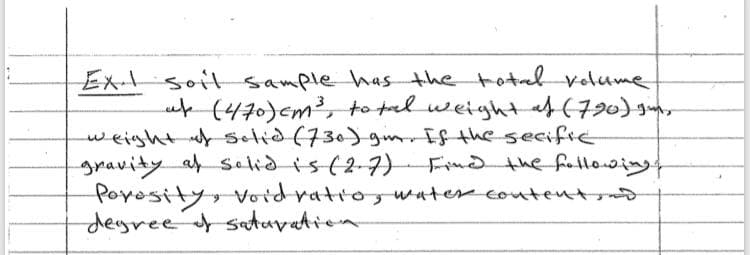 Ex.1 soil sample has the total volume
of (470) cm³, total weight of (790) gm,
weight of solid (730) gm. If the secific
gravity of solid is (2.7). Find the following:
Porosity, void ratio, water content, and
degree of saturation